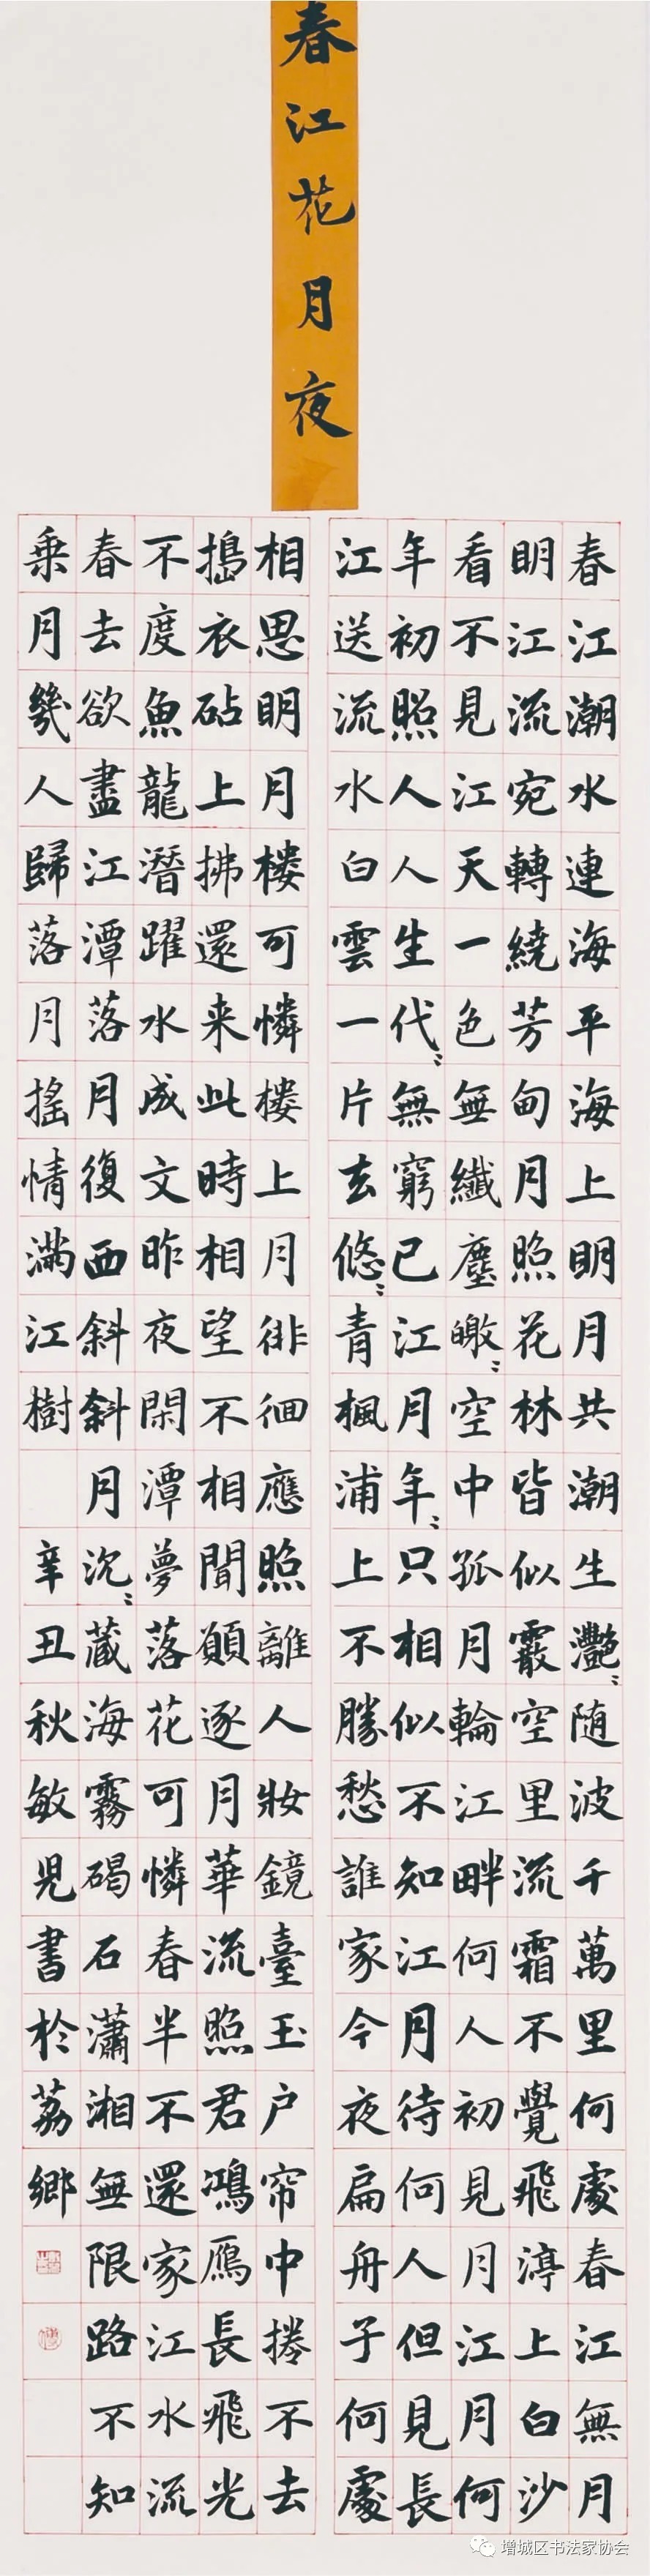 春江花月夜
春江潮水連海平海上明月共潮生灩〻随波千萬里何處春江無月
明江流宛轉繞芳甸月照花林皆似霰空里流霜不覺飛渟上白沙
看不見江天一色無纖塵皦〻空中孤月輪江畔何人初見月江月何
年初照人人生代〻無窮已江月年〻只相似不知江月待何人但見長
江送流水白雲一片去悠〻青楓浦上不勝愁誰家今夜扁舟子何處
相思明月楼可憐楼上月徘徊應照離人妝鏡臺玉户帘中捲不去
搗衣砧上拂還来此時相望不相聞願逐月華流照君鴻鴈長飛光
不度魚龍潛躍水成文昨夜閑潭夢落花可憐春半不還家江水流
春去欲盡江潭落月復西斜斜月沉〻藏海霧碣石瀟湘無限路不知
乗月幾人歸落月搖情滿江樹 辛丑秋敏児書於荔鄉
增城区书法家协会